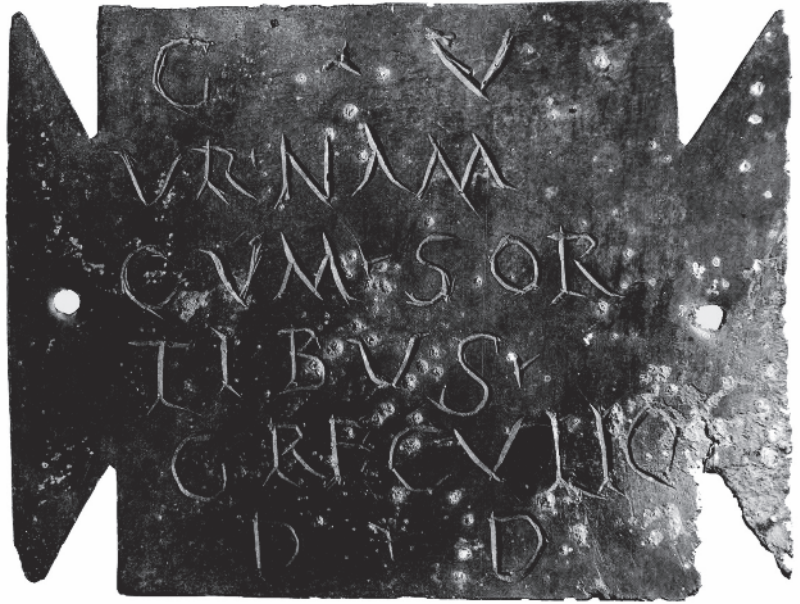 G · V
VRNAM
CVM · SOR
TIBVS ·
GRECVIIO
D · D